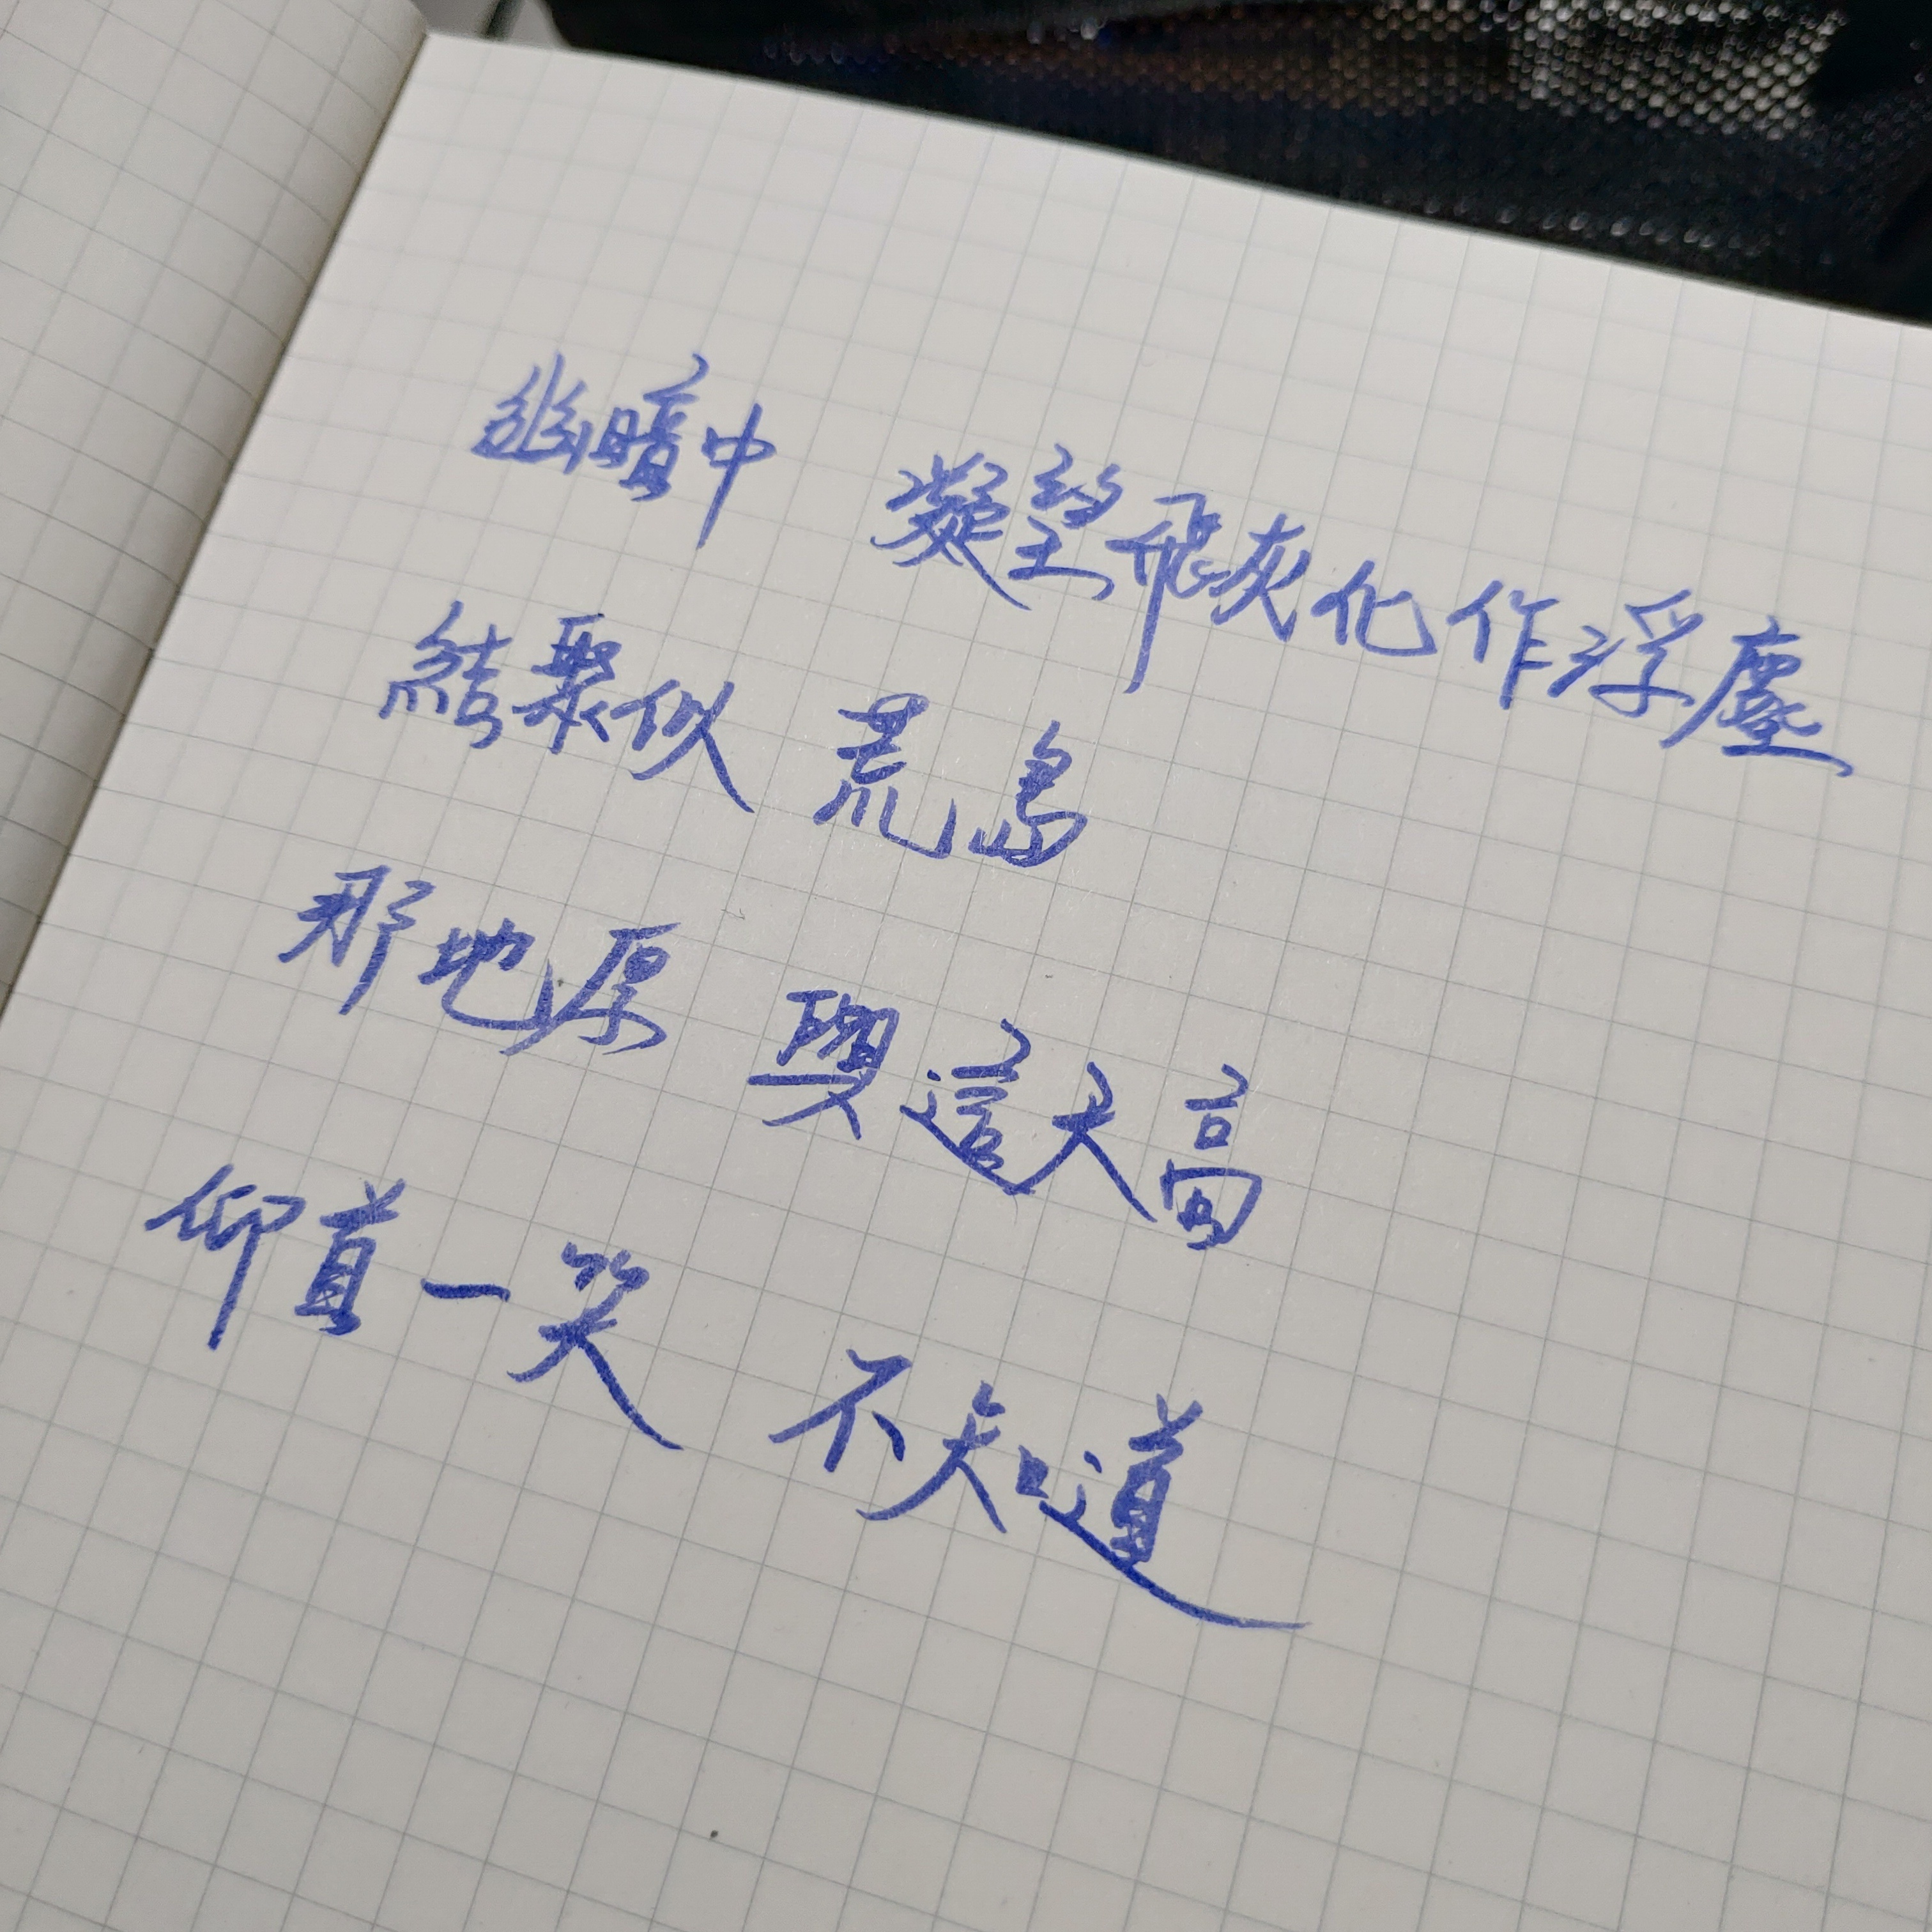 幽暗中 凝望飛灰化作浮塵
結聚似 荒島
那地厚 與這天高
仰首一笑 不知道